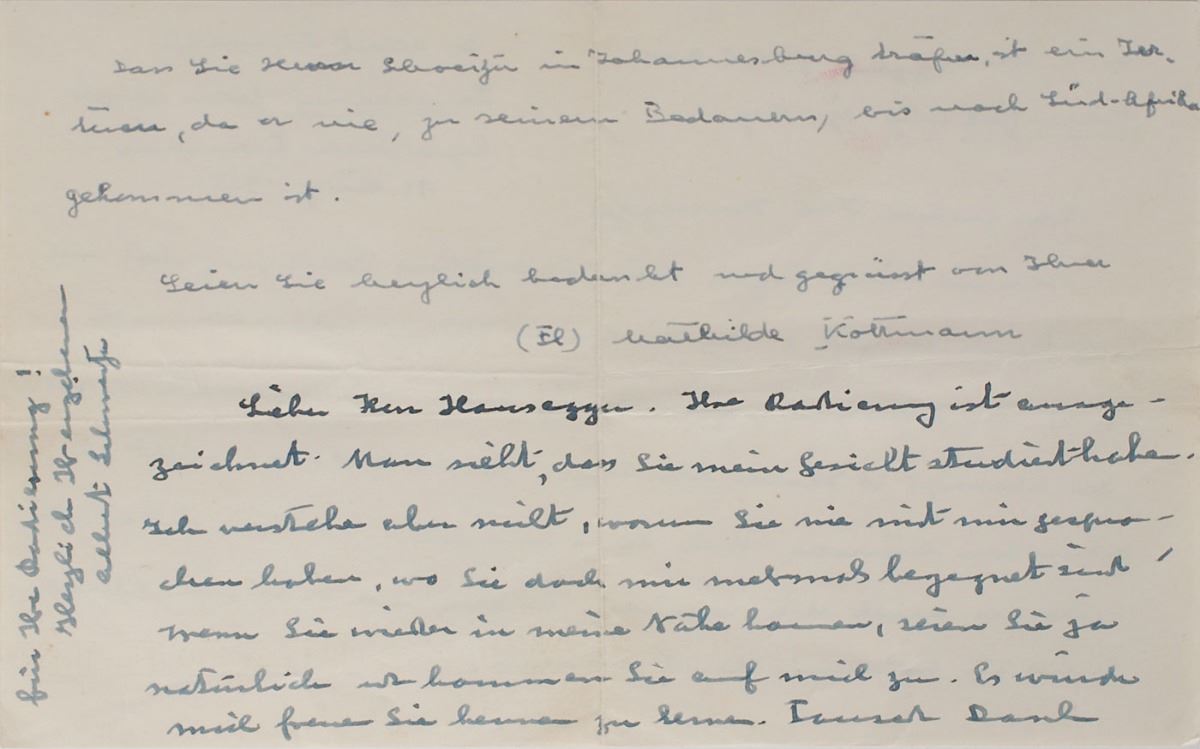 dass Sie Herrn Schweitzer in Johannesburg träfen, ist ein Irr-
tum, da er nie, zu seinem Bedauern, bis nach Süd-Afrika
gekommen ist.
Seien Sie herzlich bedankt und gegrüsst von Ihrer
(Frl) Mathilde Kottmann
Lieber Herr Hausegger. Ihre Radierung ist ausge-
zeichnet. Man sieht, dass Sie mein Gesicht studiert haben.
Ich verstehe aber nicht, warum Sie nie mit mir gespro-
chen haben, wo Sie doch mir mehrmals begegnet sind!
Wenn Sie wieder in meine Nähe kommen, seien Sie ja
natürlich und kommen Sie auf mich zu. Es würde
mich freuen Sie kennen zu lernen. Tausend Dank
für Ihre Radierung!
Herzlich Ihr ergebener
Albert Schweitzer